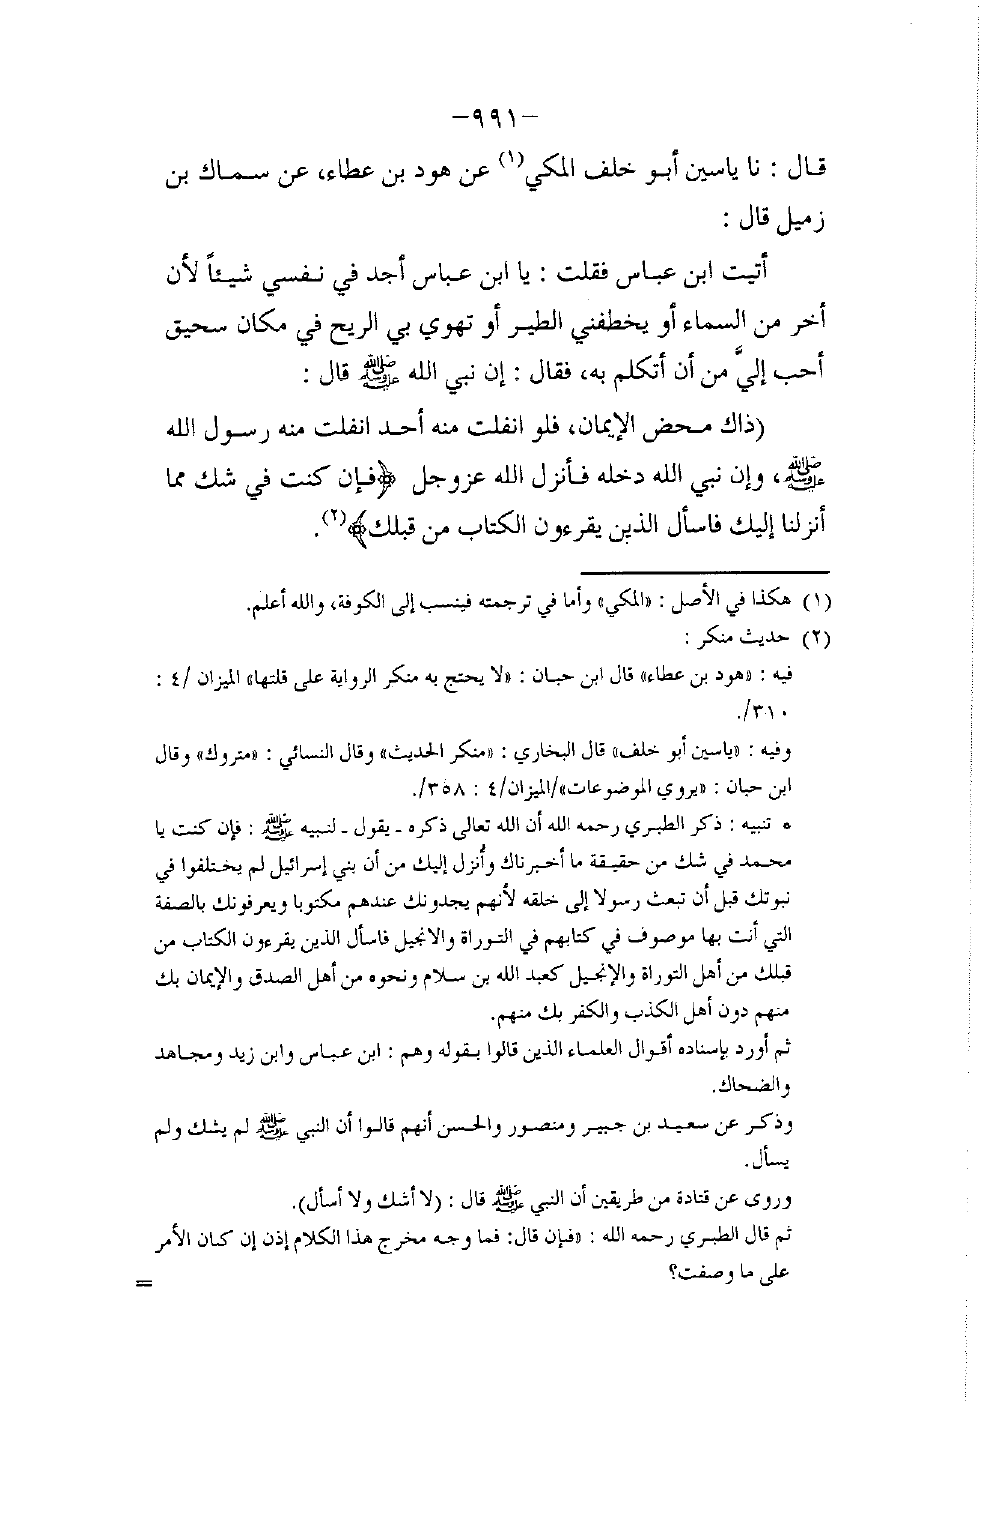 -٩٩١-
قال : نا ياسين أبو خلف المكي(١) عن هود بن عطاء، عن سماك بن
زميل قال :
أتيت ابن عباس فقلت : يا ابن عباس أجد في نفسي شيئاً لأن
أخر من السماء أو يخطفني الطير أو تهوي بي الريح في مكان سحيق
أحب إليَّ من أن أتكلم به، فقال : إن نبي الله ﷺ قال :
(ذاك محض الإيمان، فلو انفلت منه أحد انفلت منه رسول الله
ﷺ، وإن نبي الله دخله فأنزل الله عزوجل ﴿فإن كنت في شك مما
أنزلنا إليك فاسأل الذين يقرءون الكتاب من قبلك﴾(٢).
(١) هكذا في الأصل : «المكي» وأما في ترجمته فينسب إلى الكوفة، والله أعلم.
(٢) حديث منكر :
فيه : «هود بن عطاء» قال ابن حبان : «لا يحتج به منكر الرواية على قلتها» الميزان /٤ :
٣١٠/.
وفيه : «ياسين أبو خلف» قال البخاري : «منكر الحديث» وقال النسائي : «متروك» وقال
ابن حبان : «يروي الموضوعات»/الميزان/٤ : ٣٥٨/.
* تنبيه : ذكر الطبري رحمه الله أن الله تعالى ذكره ـ يقول ـ لنبيه ﷺ : فإن كنت يا
محمد في شك من حقيقة ما أخبرناك وأُنزل إليك من أن بني إسرائيل لم يختلفوا في
نبوتك قبل أن تبعث رسولا إلى خلقه لأنهم يجدونك عندهم مكتوبا ويعرفونك بالصفة
التي أنت بها موصوف في كتابهم في التوراة والانجيل فاسأل الذين يقرءون الكتاب من
قبلك من أهل التوراة والإنجيل كعبد الله بن سلام ونحوه من أهل الصدق والإيمان بك
منهم دون أهل الكذب والكفر بك منهم.
ثم أورد بإسناده أقوال العلماء الذين قالوا بقوله وهم : ابن عباس وابن زيد ومجاهد
والضحاك.
وذكر عن سعيد بن جبير ومنصور والحسن أنهم قالوا أن النبي ﷺ لم يشك ولم
يسأل.
وروى عن قتادة من طريقين أن النبي ﷺ قال : (لا أشك ولا أسأل).
ثم قال الطبري رحمه الله : «فإن قال: فما وجه مخرج هذا الكلام إذن إن كان الأمر
على ما وصفت؟
=